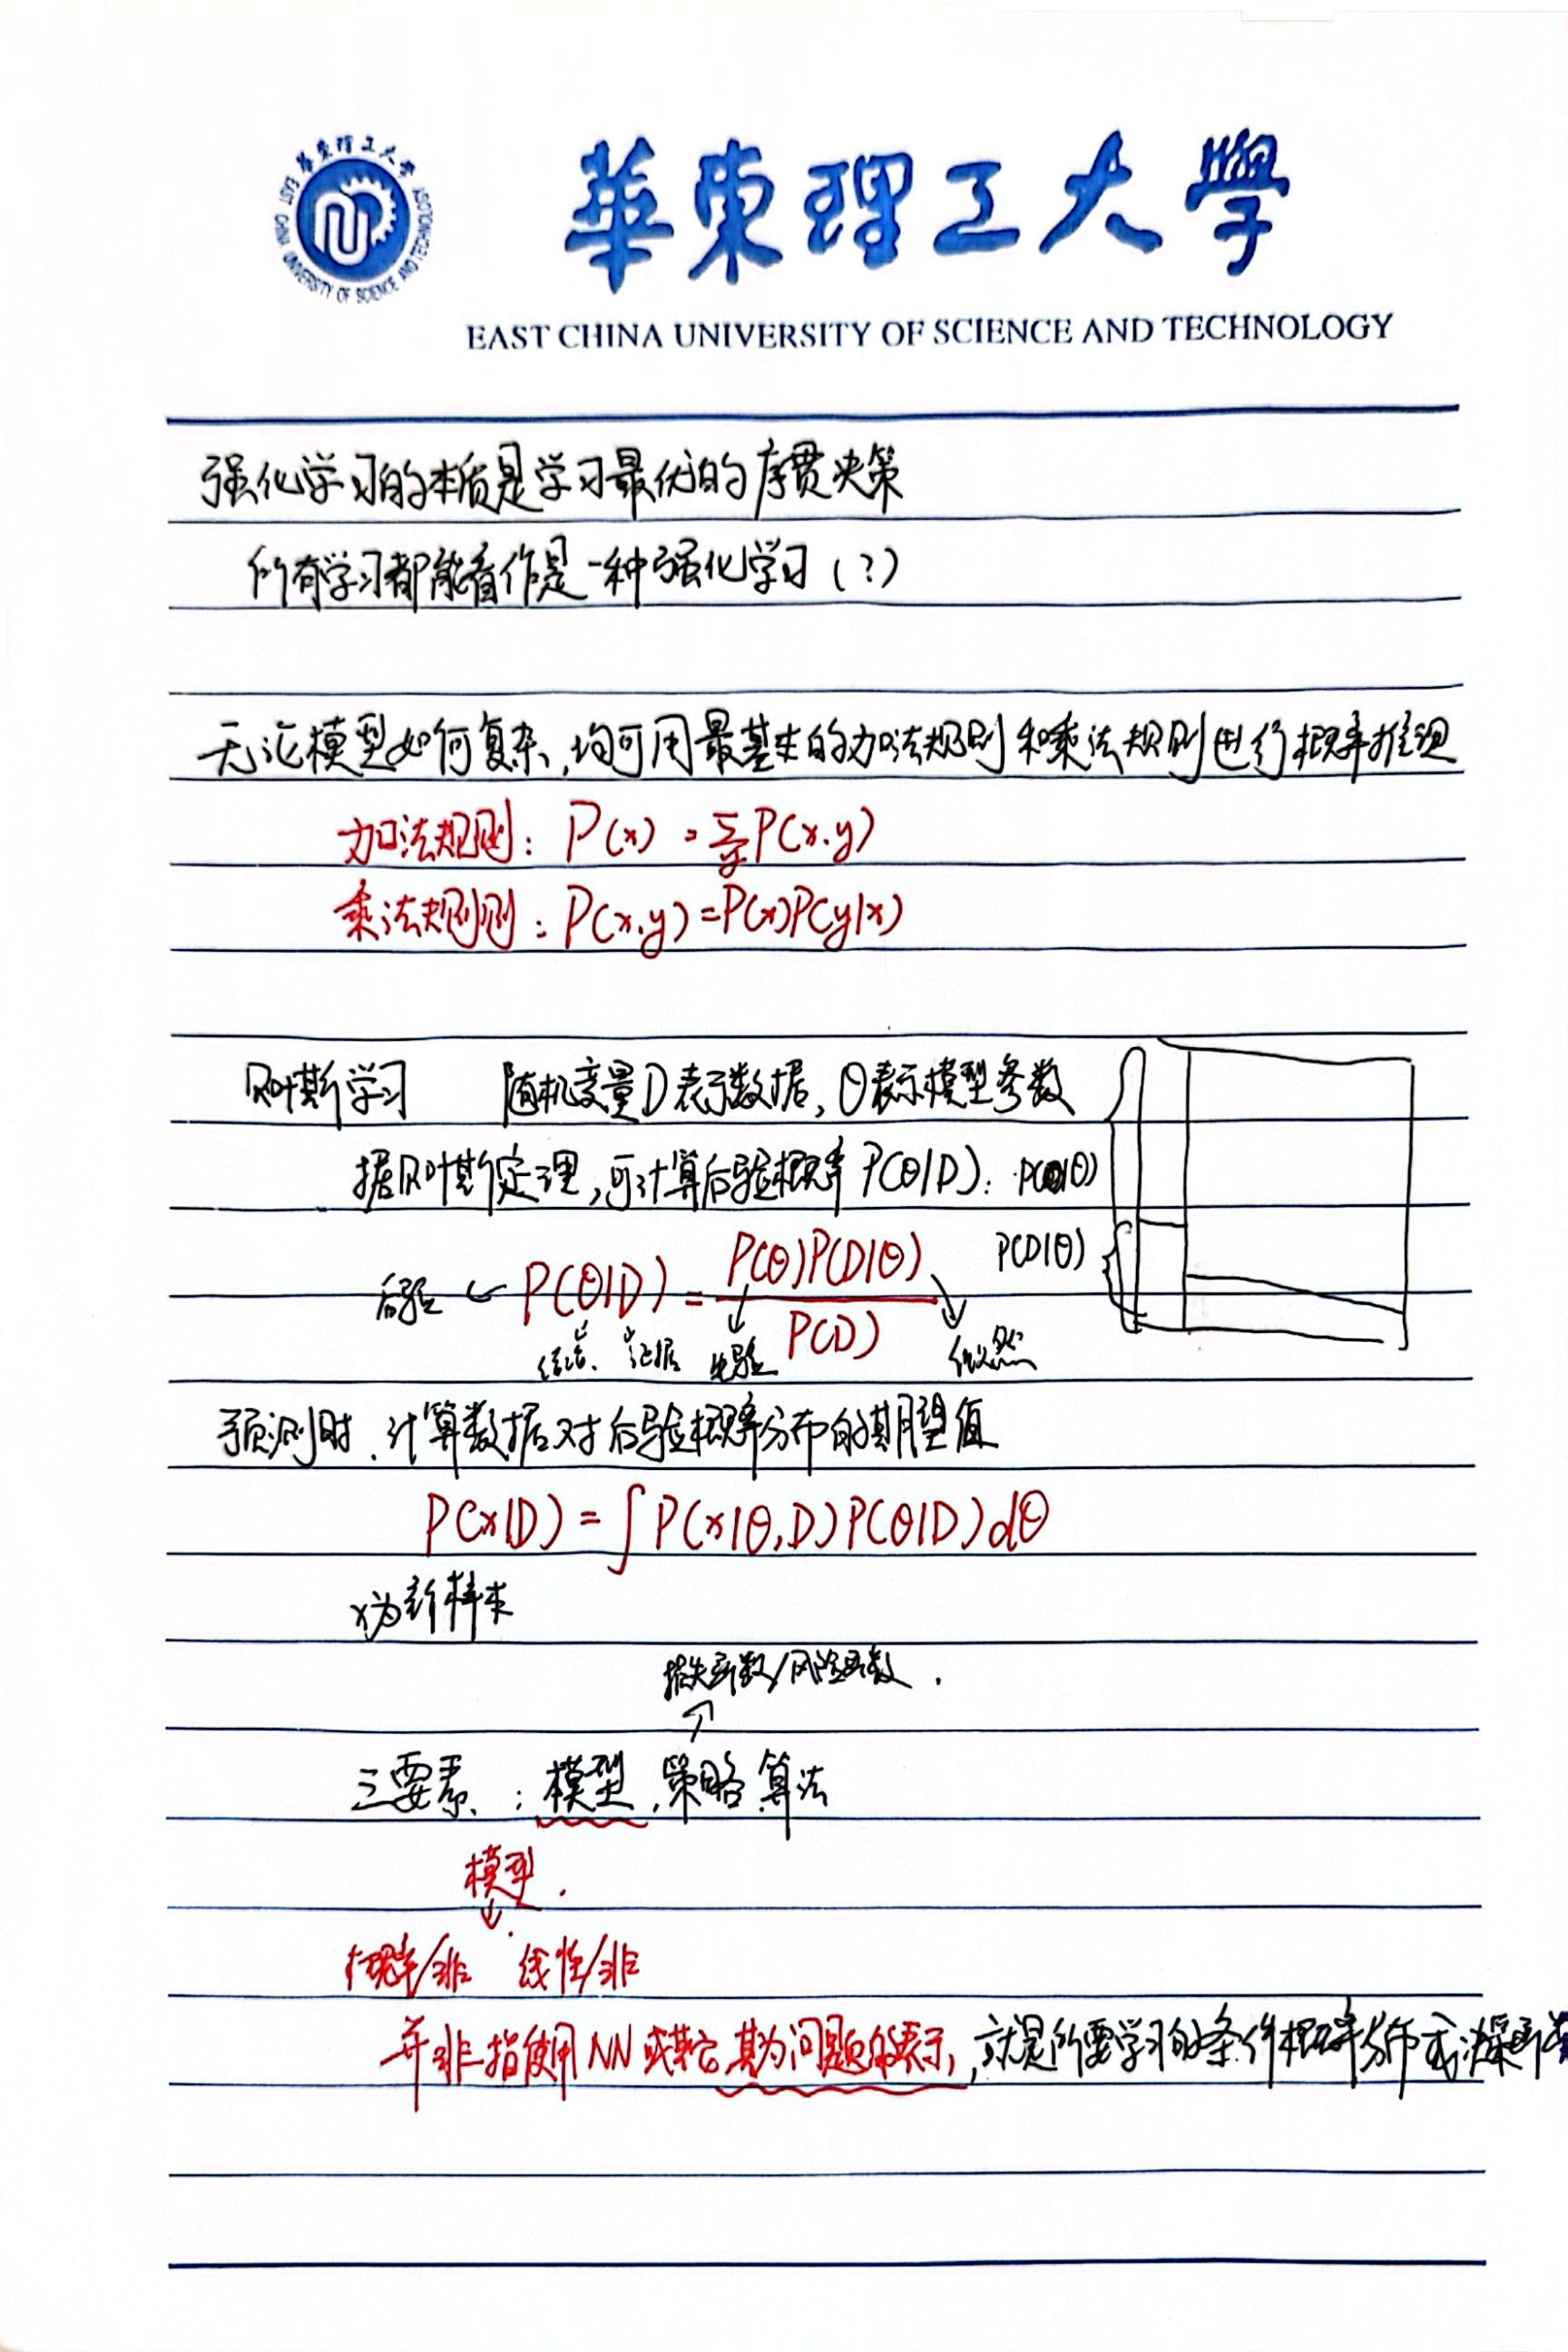 華東理工大學
EAST CHINA UNIVERSITY OF SCIENCE AND TECHNOLOGY
華東理工大学
EAST CHINA UNIVERSITY OF SCIENCE AND TECHNOLOGY
强化学习的本质是学习最优的序贯决策
所有学习都能看作是一种强化学习（？）
无论模型如何复杂,均可用最基本的加法规则和乘法规则进行概率推理
加法规则: P(x) = ∑y P(x.y)
乘法规则: P(x.y)=P(x)P(y|x)
贝叶斯学习 随机变量D表示数据, θ表示模型参数
据贝叶斯定理,可计算后验概率 P(θ|D): P(D|θ)
后验 ← P(θ|D) = P(θ)P(D|θ) / P(D) P(D|θ)
结论、 证据 先验 似然
预测时,计算数据对后验概率分布的期望值
P(x|D) = ∫P(x|θ,D)P(θ|D)dθ
x为新样本
损失函数/风险函数.
三要素:模型,策略 算法
模型.
概率/非 线性/非
并非指使用NN或其它,其为问题的表示,就是所要学习的条件概率分布或决策函